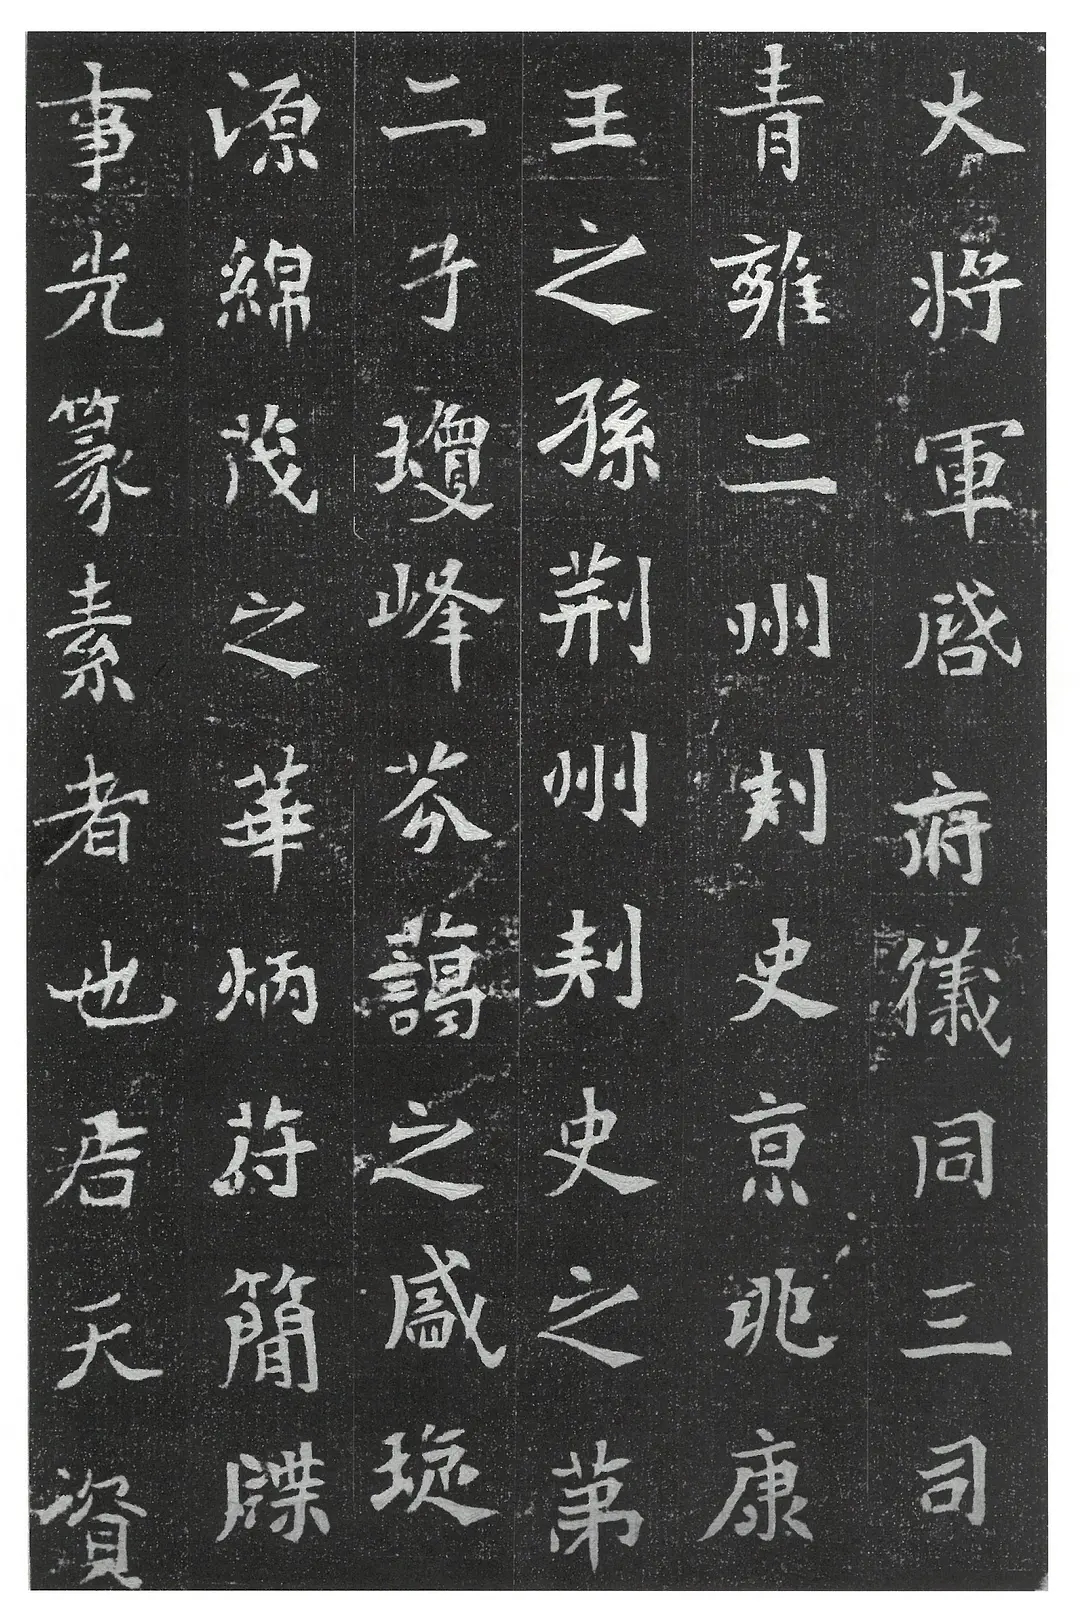 大將軍啓府儀同三司
青雍二州刺史京兆康
王之孫荊州刺史之第
二子瓊峰芬藹之盛琁
源綿茂之華炳苻簡牒
事光篆素者也君天資